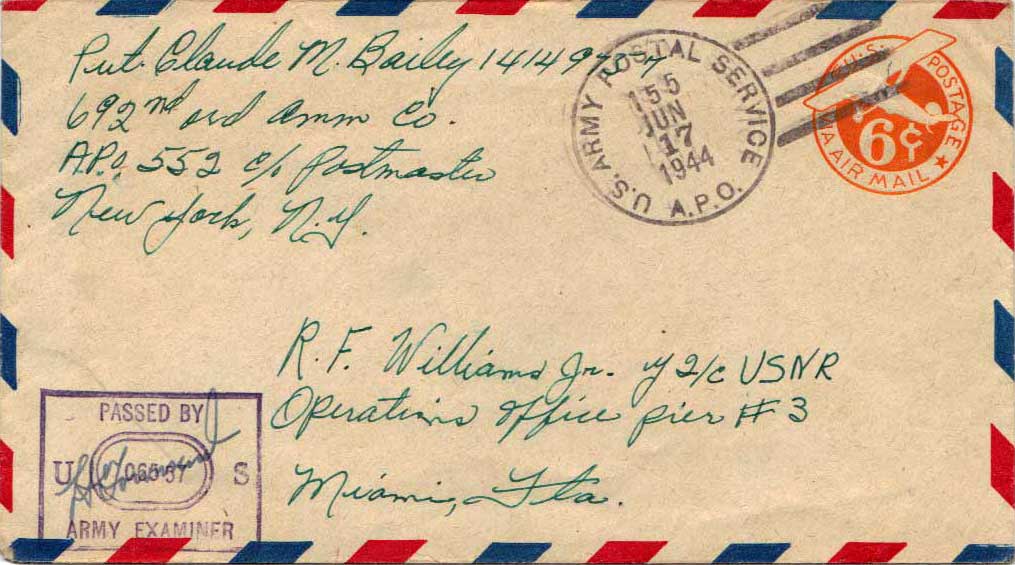 Pvt. Claude M. Bailey
692nd ord Amm Co.
A.P.O. 552 c/o Postmaster
New York, N.Y.
U.S. ARMY POSTAL SERVICE
155
JUN
17
1944
A.P.O.
U.S. POSTAGE
6¢
VIA AIR MAIL
R. F. Williams Jr. Y2/c USNR
Operations Office Pier #3
Miami, Fla.
PASSED BY
U S
ARMY EXAMINER